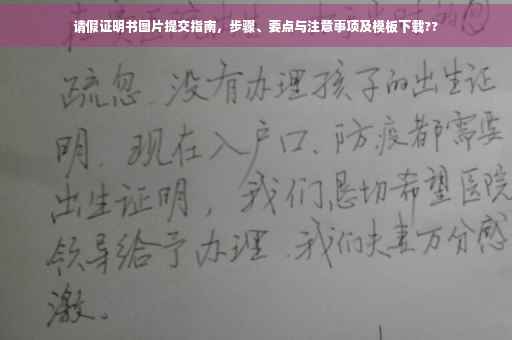 请假证明书图片提交指南，步骤、要点与注意事项及模板下载??
疏忽.没有办理孩子的出生证
明.现在入户口、防疫都需要
出生证明，我们恳切希望医院
领导给予办理.我们夫妻万分感
激。